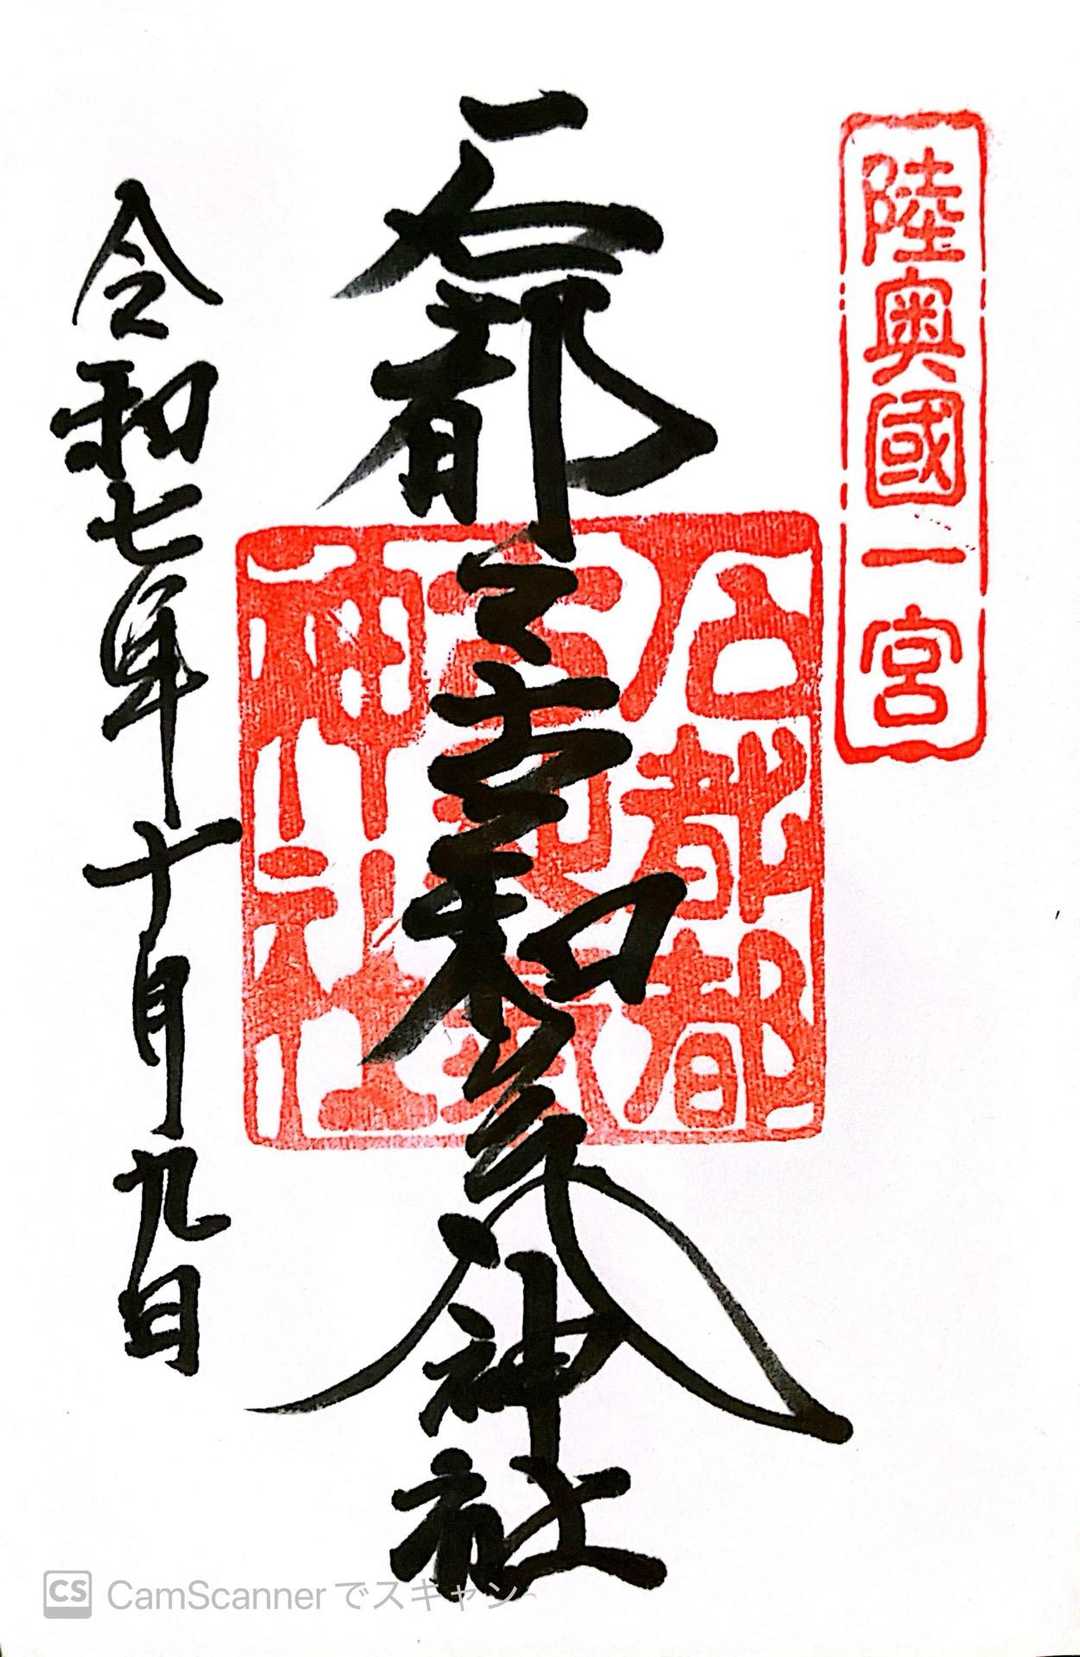 陸奥國一宮
石都々古和氣神社
石都都
古和氣
神社
令和七年十月九日
CS CamScannerでスキャン